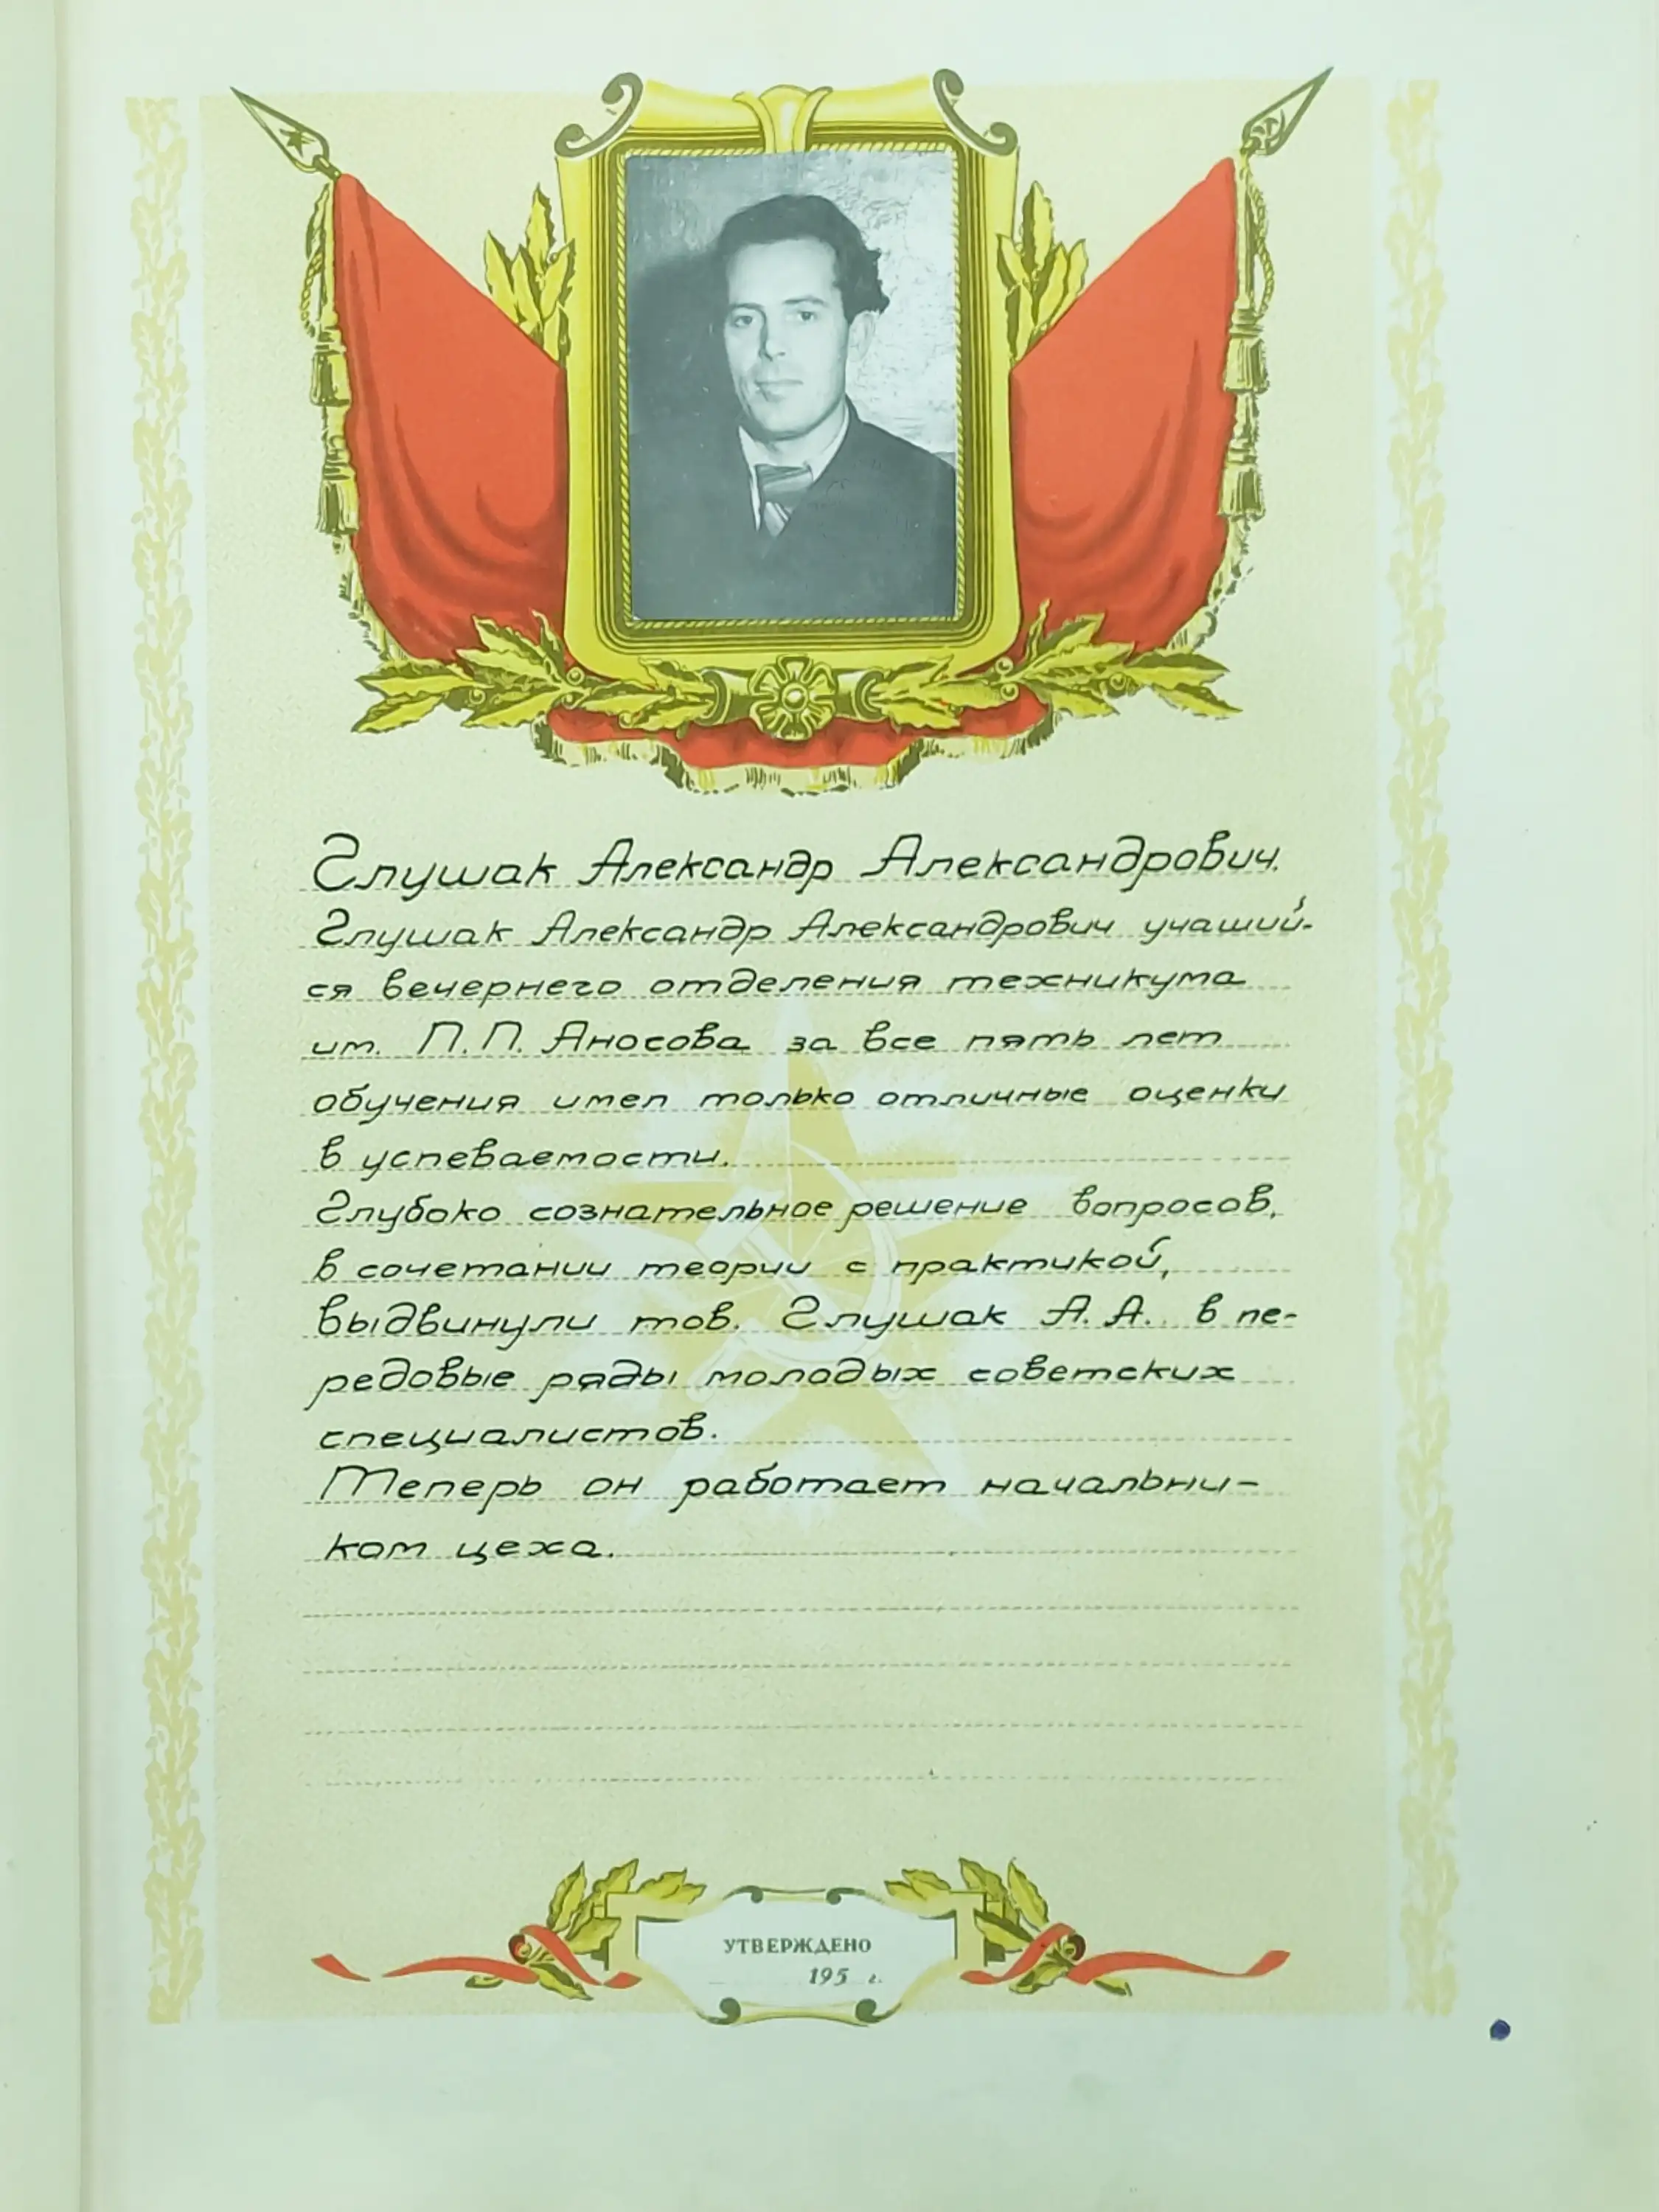 Глушак Александр Александрович.
Глушак Александр Александрович учаший-
ся вечернего отделения техникума
им. П.П. Аносова за все пять лет
обучения имел только отличные оценки
в успеваемости.
Глубоко сознательное решение вопросов,
в сочетании теории с практикой,
выдвинули тов. Глушак А.А. в пе-
редовые ряды молодых советских
специалистов.
Теперь он работает начальни-
ком цеха.
УТВЕРЖДЕНО
195 г.